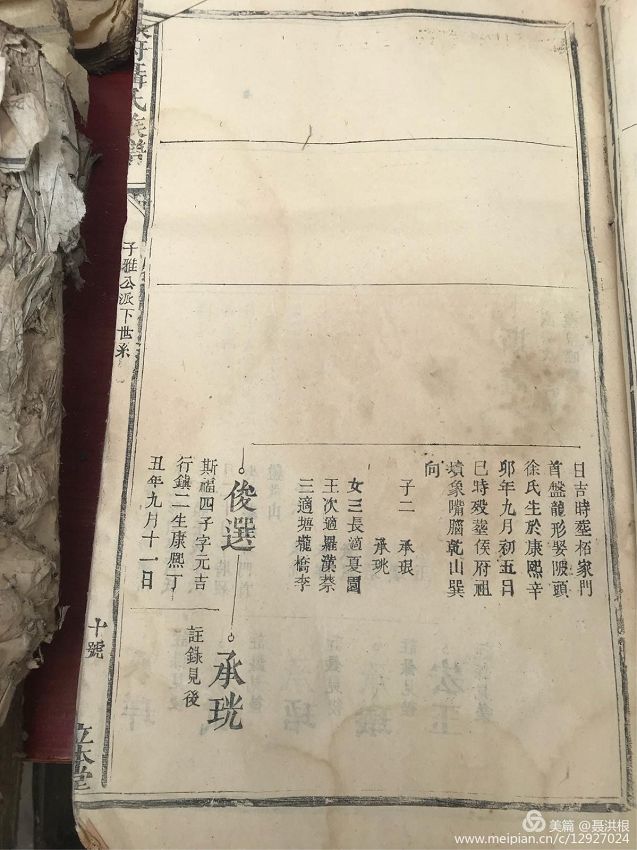 日吉時塟栢家門
首盤龍形娶陂頭
徐氏生於康熙辛
卯年九月初五日
巳時殁塟侯府祖
墳象嘴腦乾山巽
向
子二 承珢
承珖
女三長適夏園
王次適羅漢蔡
三適塘壠橋李
俊選
斯福四子字元吉
行鎮二生康熙丁
丑年九月十一日
承珖
註錄見後
氏族譜
子雅公派下世系
十號
立本堂
美篇 @聂洪根
www.meipian.cn/c/12927024